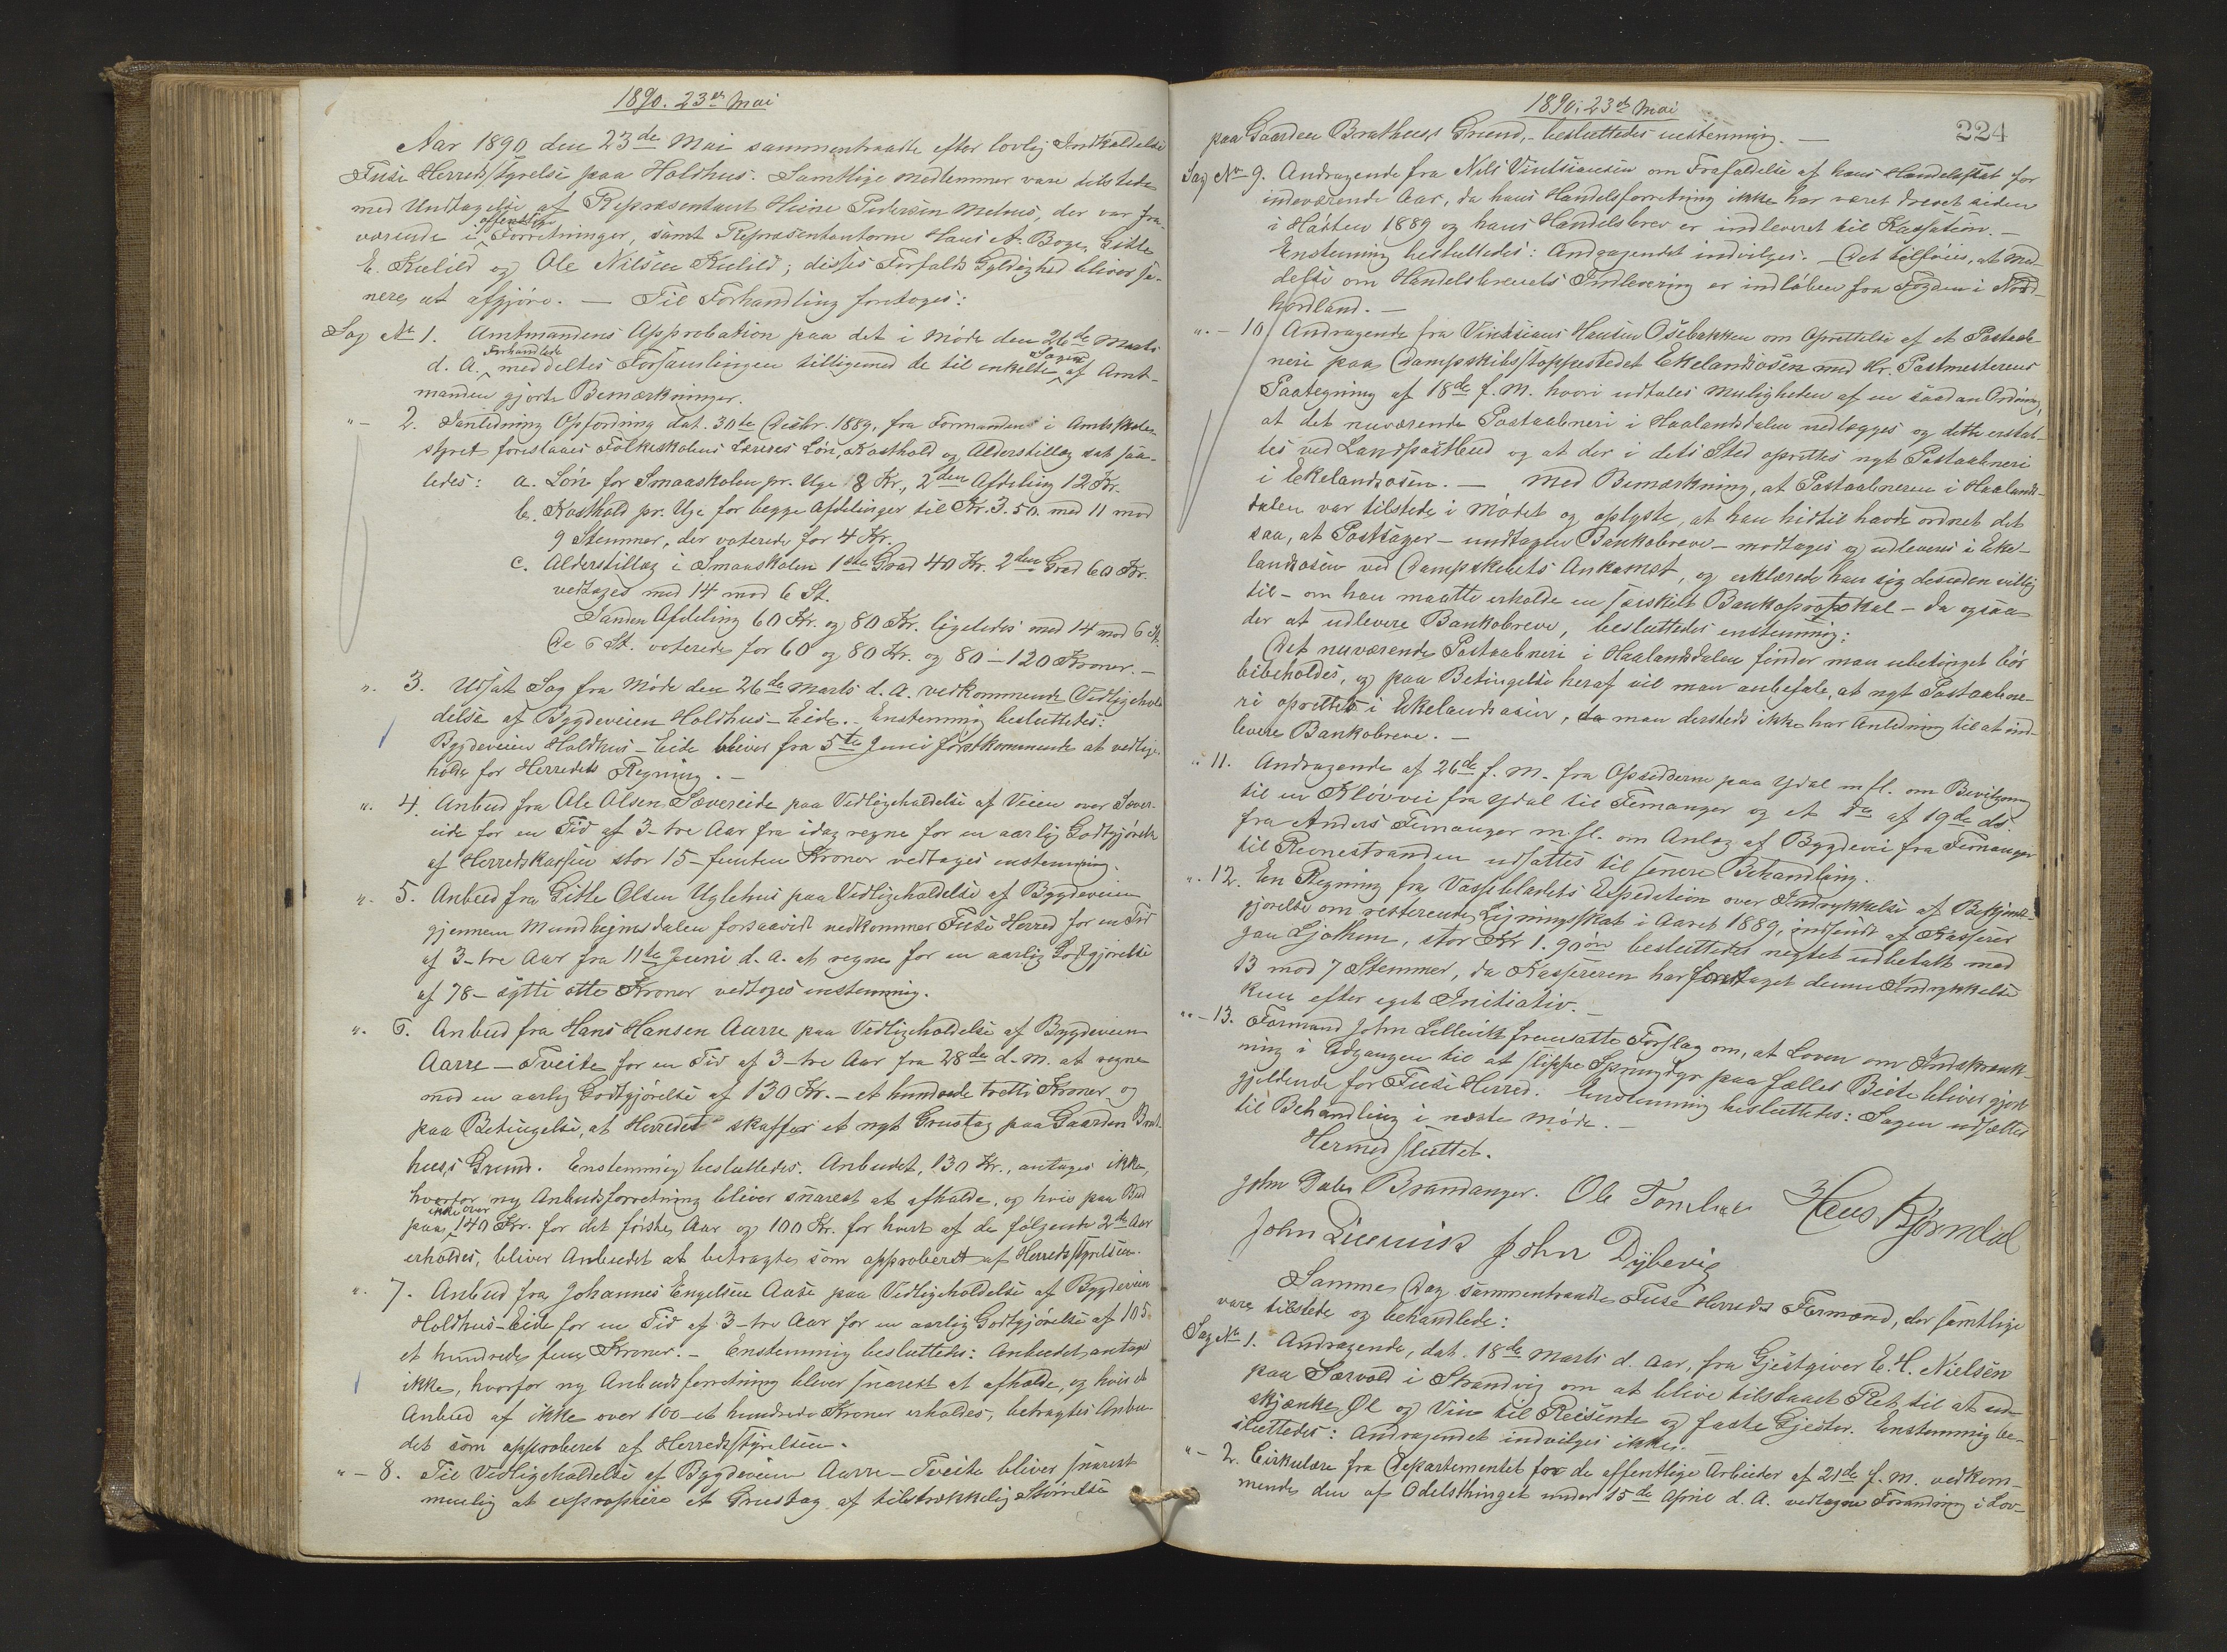 1890. 23de Mai
Aar 1890 den 23de Mai sammentraadte efter lovlig Indkaldelse
Fuse Herredsstyrelse paa Holdhus. Samtlige Medlemmer vare tilstede
med Undtagelse af Repræsentant Heine Pedersen Melnes, der var fra-
værende i offentlige Forretninger, samt Repræsentanterne Hans A. Boge, Gitle
E. Kulild og Ole Nilsen Kulild; disses Forfalds Gyldighed bliver se-
nere at afgjøre. — Til Forhandling foretoges:
Sag No 1. Amtmandens Approbation paa det i Møde den 26de Marts
d. A. Forhandlede meddeltes Forsamlingen tilligemed de til enkelte Sager af Amt-
manden gjorte Bemærkninger.
" – 2. I Anledning Opfordring dat. 30te Decbr. 1889, fra Formanden i Amtsskole-
styret foreslaaes Folkeskolens Læreres Løn, Kosthold og Alderstillæg sat saa-
ledes: a. Løn for Smaaskolen pr. Uge 8 Kr., 2den Afdeling 12 Kr.
b. Kosthold pr. Uge for begge Afdelinger til Kr. 3.50. med 11 mod
9 Stemmer, der voterede for 4 Kr.
c. Alderstillæg i Smaaskolen 1ste Grad 40 Kr. 2den Grad 60 Kr.
vedtages med 14 mod 6 St.
I anden Afdeling 60 Kr. og 80 Kr. ligeledes med 14 mod 6 St.
De 6 St. voterede for 60 og 80 Kr. og 80 – 120 Kroner. –
". 3. Udsat Sag fra Møde den 26de Marts d. A. vedkommende Vedligehol-
delse af Bygdeveien Holdhus – Eide. – Enstemmig besluttedes:
Bygdeveien Holdhus – Eide bliver fra 5te Juni førstkommende at vedlige-
holde for Herredets Regning. –
". 4. Anbud fra Ole Olsen Sævereide paa Vedligeholdelse af Veien over Sæver-
eide for en Tid af 3 – tre Aar fra idag regne for en aarlig Godtgjørelse
af Herredskassen stor 15 – femten Kroner vedtages enstemmig.
". 5. Anbud fra Gitle Olsen Uglehus paa Vedligeholdelse af Bygdeveien
gjennem Mundheimsdalen forsaavidt vedkommer Fuse Herred for en Tid
af 3 – tre Aar fra 11te Juni d. A. at regne for en aarlig Godtgjørelse
af 78 – sytti otte Kroner vedtoges enstemmig.
". 6. Anbud fra Hans Hansen Aarre paa Vedligeholdelse af Bygdeveien
Aarre – Tveite for en Tid af 3 – tre Aar fra 28de d. M. at regne
mod en aarlig Godtgjørelse af 130 Kr. – et hundrede tretti Kroner og
paa Betingelse, at Herredet skaffer et nyt Grustag paa Gaarden Brat-
hus's Grund. Enstemmig besluttedes. Anbudet, 130 Kr., antages ikke,
hvorfor ny Anbudsforretning bliver snarest at afholde, og hvis paa Bud
paa ikke over 140 Kr. for det første Aar og 100 Kr. for hvert af de følgende 2de Aar
erholdes, bliver Anbudet at betragte som approberet af Herredsstyrelsen.
". 7. Anbud fra Johannes Engelsen Aase paa Vedligeholdelse af Bygdeveien
Holdhus – Eide for en Tid af 3 – tre Aar for en aarlig Godtgjørelse af 105
et hundrede fem Kroner. – Enstemmig besluttedes: Anbudet antages
ikke, hvorfor ny Anbudsforretning bliver snarest at afholde, og hvis et
Anbud af ikke over 100 – et hundrede Kroner erholdes, betragtes Anbu-
det som approberet af Herredsstyrelsen.
" – 8. Til Vedligeholdelse af Bygdeveien Aarre – Tveite bliver snarest
muelig at expropriere et Grustag af tilstrækkelig Størrelse
1890, 23de Mai
224
paa Gaarden Brathuss Grund, – besluttedes enstemmig. –
Sag No 9. Andragende fra Nils Vintsiansen om Frafaldelse af hans Handelsskat for
indeværende Aar, da hans Handelsforretning ikke har været drevet siden
i Høsten 1889 og hans Handelsbrev er indleveret til Kassation. –
Enstemmig besluttedes: Andragendet indvilges. – Det tilføies, at Med-
delse om Handelsbrevets Indlevering er indløben fra Fogden i Nord-
hordland. –
". – 10 Andragende fra Vintsians Hansen Osebakken om Oprettelse af et Postaab-
neri paa Dampskibsstoppestedet Ekelandsosen med Hr. Postmesterens
Paategning af 18de f. M. hvori udtales Muligheden af en saadan Ordning,
at det nuværende Postaabneri i Haalandsdalen nedlægges og dette erstat-
tes ved Landpostbud og at der i dets Sted oprettes nyt Postaabneri
i Ekelandsosen. – Med Bemærkning, at Postaabneren i Haalands-
dalen var tilstede i Mødet og oplyste, at han hidtil havde ordnet det
saa, at Postsager – undtagen Bankobreve – modtages og udleveres i Eke-
landsosen ved Dampskibets Ankomst, og erklærede han sig desuden villig
til – om han maatte erholde en særskilt Bankoprotokol – da ogsaa
der at udlevere Bankobreve, besluttedes enstemmig:
Det nuværende Postaabneri i Haalandsdalen finder man ubetinget bør
bibeholdes, og paa Betingelse heraf vil man anbefale, at nyt Postaabne-
ri oprettes i Ekelandsosen, da man dersteds ikke har Anledning til at ind-
levere Bankobreve. –
" 11. Andragende af 26de f. M. fra Opsidderne paa Ydal m fl. om Bevilgning
til en Kløvvei fra Ydal til Femanger og et do af 19de ds.
fra Anders Femanger m. fl. om Anlæg af Bygdevei fra Femanger
til Revnestranden udsattes til senere Behandling.
". 12. En Regning fra Vossebladets Expedition over Indrykkelse af Bekjendt-
gjørelse om resterende Ligningsskat i Aaret 1889, indsendt af Kasserer
Jan Ljothem, stor Kr 1.90 øre besluttedes negtet udbetalt med
13 mod 7 Stemmer, da Kassereren har foretaget denne Indrykkelse
kun efter eget Initiativ. –
" – 13. Formand John Lillevik fremsatte Forslag om, at Loven om Indskrænk-
ning i Adgangen til at slippe Sprungdyr paa fælles Beite bliver gjort
gjeldende for Fuse Herred. Enstemmig besluttedes: Sagen udsættes
til Behandling i næste Møde. –
Hermed sluttet.
John Dales Brandanger. Ole Hans Bjørndal
John Lillevik John Dybevig
Samme Dag sammentraadte Fuse Herreds Formænd, der samtlige
vare tilstede og behandlede:
Sag No 1. Andragende, dat. 18de Marts d. Aar, fra Gjestgiver E. H. Nielsen
paa Sævold i Strandvig om at blive tilstaaet Ret til at ud-
skjænke Øl og Vin til Reisende og faste Gjester. Enstemmig be-
sluttedes: Andragendet indvilges ikke.
" – 2. Cirkulære fra Departementet for de offentlige Arbeider af 21de f. M. vedkom-
mende den af Odelsthinget under 15de April d. A. vedtagne Forandring i Lov-